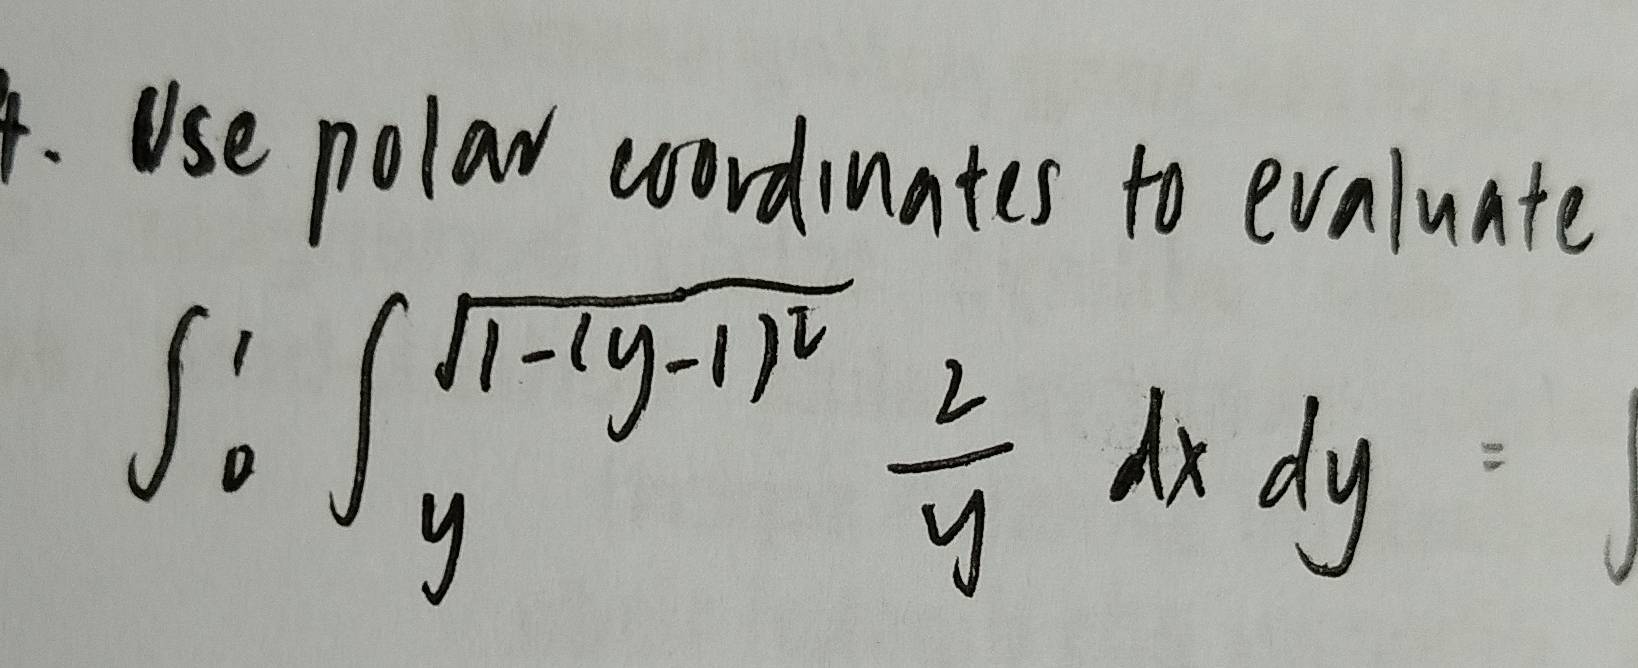 4. Use polar coordinates to evaluate
∫₀¹ ∫_y^√(1-(y-1)²) 2/y dx dy = ∫